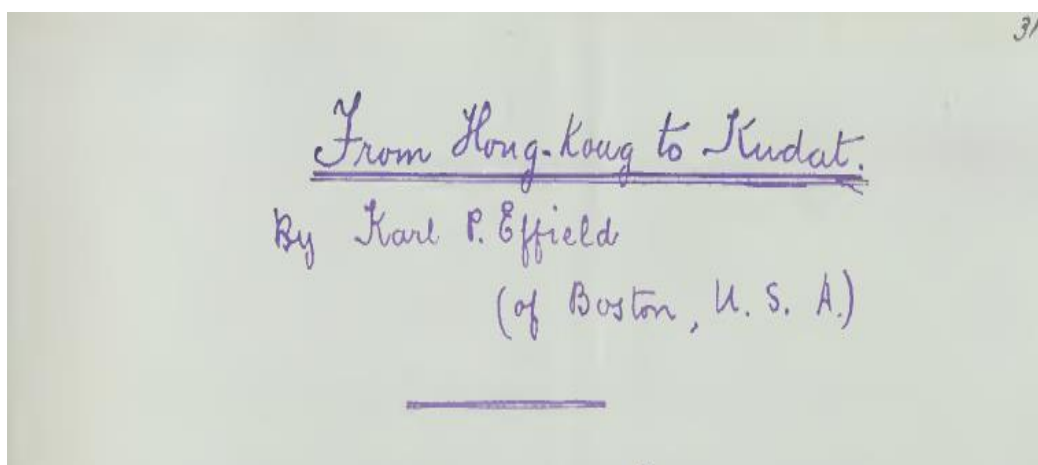 31
From Hong-Kong to Kudat.
By Karl P. Effield
(of Boston, U. S. A.)